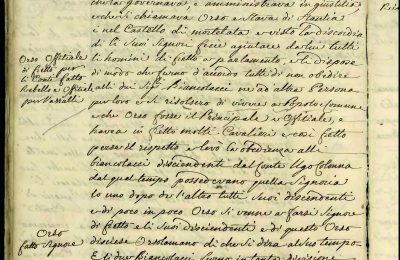 che la governava, e amministrava in giustitia
e che si chiamava Orso e stava di stantia
nel Castello di mortelata e visto la discordia
di li Suoi Signori fece aiutare da lui tutti
li homini di frotto a parlamento, e li dispose
di modo che furno d'accordo tutti di non obedire
alli dui Sig.ri Biancolacci ne ad altra Persona
per loro e si risolsero di vivere a Popolo e Comune
e che Orso fosse il Principale e Officiale, e
havea in fretto molti Cavalieri e così fretto
perse il rispetto e levò la obedienza alli
biancolacci discendenti dal conte Ugo Colonna
dal qual tempo possedevano quella Signoria
lo uno dopo de l'altro tutti Suoi discendenti
e di poco in poco Orso si venne a farsi Signore
di fretto e li Suoi discendenti e di questo Orso
discese Orsolamano di che si dira al suo tempo
E li dui Biancolacci furno in tanta divisione
Orso Offitiale
di fretto per
li Conti fatto
Rebello e Officiale
per
Orso
fatto Signore